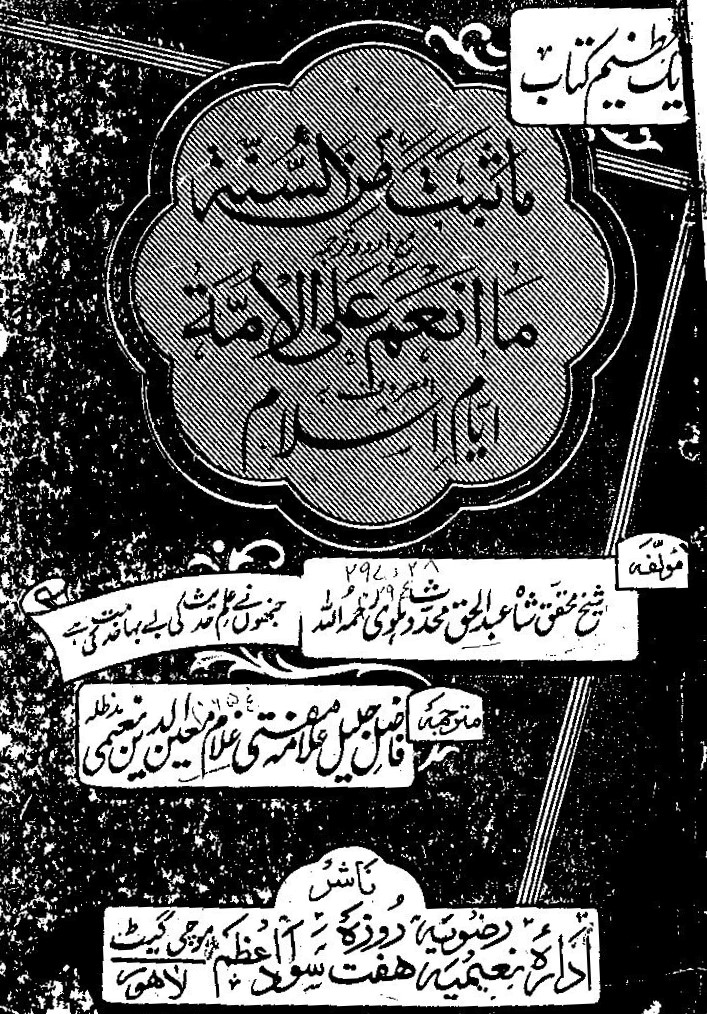 ایک عظیم کتاب
ما ثبت من السنۃ
مع اردو ترجمہ
ما انعم علی الامۃ
المعروف بہ
ایام اسلام
مولفہ
شیخ محقق شاہ عبد الحق محدث دہلوی رحمہ اللہ
جنھوں نے علم حدیث کی بے بہا خدمت کی ہے
مترجمہ
فاضل جلیل علامہ مفتی غلام معین الدین نعیمی مدظلہ
ناشر
ادارہ نعیمیہ رضویہ ہفت روزہ سواد اعظم موچی گیٹ لاہور